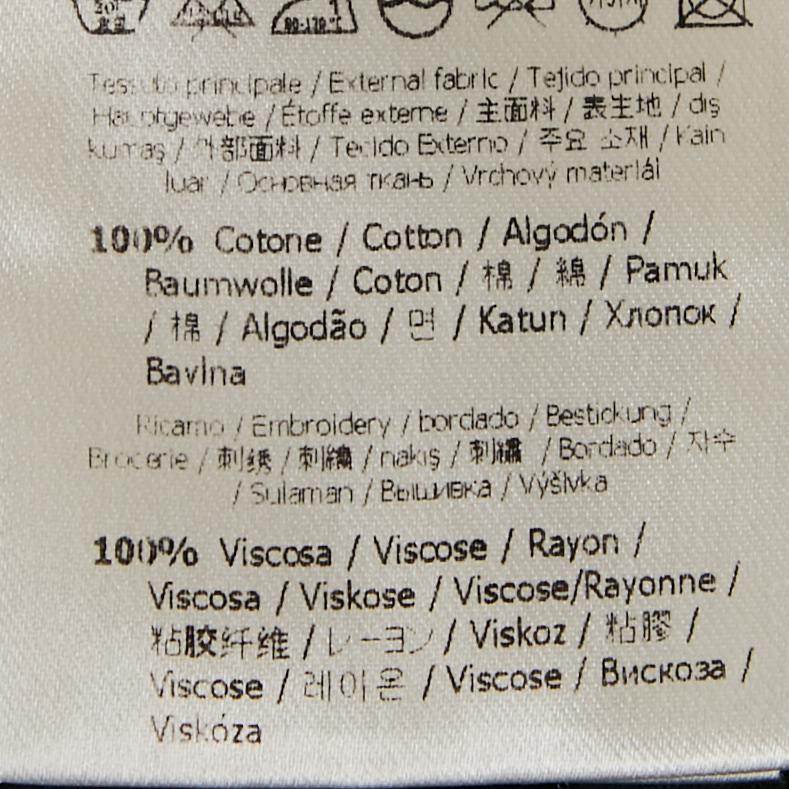 Tessuto principale / External fabric / Tejido principal /
Hauptgewebe / Étoffe externe / 主面料 / 表生地 / dış
kumaş / 外部面料 / Tecido Externo / 주요 소재 / Kain
luar / Основная ткань / Vrchový materiál
100% Cotone / Cotton / Algodón /
Baumwolle / Coton / 棉 / 綿 / Pamuk
/ 棉 / Algodão / 면 / Katun / Хлопок /
Bavlna
Ricamo / Embroidery / bordado / Bestickung /
Broderie / 刺绣 / 刺繍 / nakış / 刺繡 / Bordado / 자수
/ Sulaman / Вышивка / Výšivka
100% Viscosa / Viscose / Rayon /
Viscosa / Viskose / Viscose/Rayonne /
粘胶纤维 / レーヨン / Viskoz / 粘膠 /
Viscose / 레이온 / Viscose / Вискоза /
Viskóza